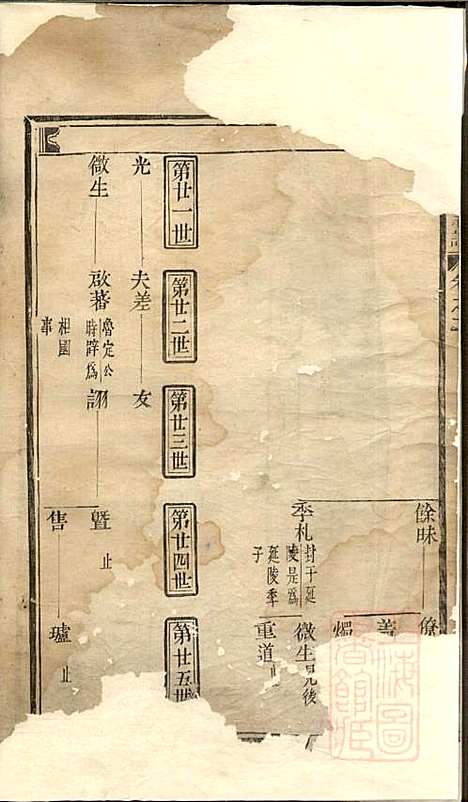 餘昧 僚
蓋
燭
季札 封于延陵是為延陵季子
徵生 見後
重道 止
第廿一世
第廿二世
第廿三世
第廿四世
第廿五世
光 夫差 女
徵生 啟蕃 魯定公時辟為相國事 詡 暨 止
售 瓐 止